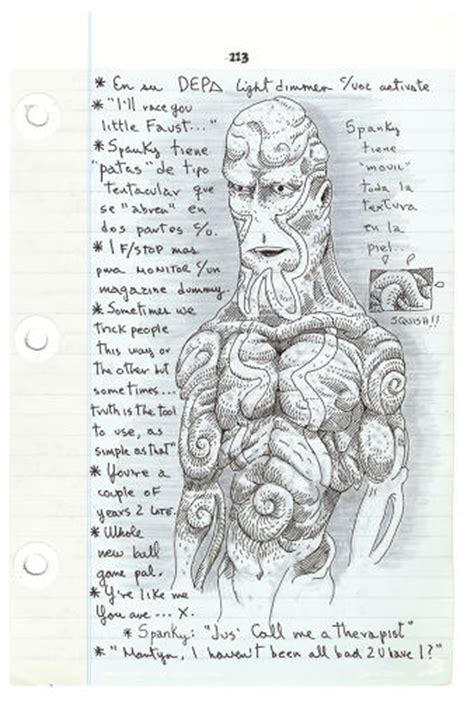 113
* En su DEPA light dimmer c/voz activate
* "I'll race you
little Faust..."
* Spanky tiene
"patas" de tipo
tentacular que
se "abren" en
dos partes c/o.
* 1 F/STOP mas
para MONITOR c/un
magazine dummy.
* Sometimes we
trick people
this way or
the other but
sometimes...
truth is the tool
to use, as
simple as that"
* You're a
couple of
years 2 late.
* Whole
new ball
game pal.
* Y're like me
You are ... X.
* Spanky: "Jus' Call me a therapist"
* "Martyn, I haven't been all bad 2 U have I?"
Spanky
tiene
"movil"
toda la
textura
en la
piel...
SQUISH!!